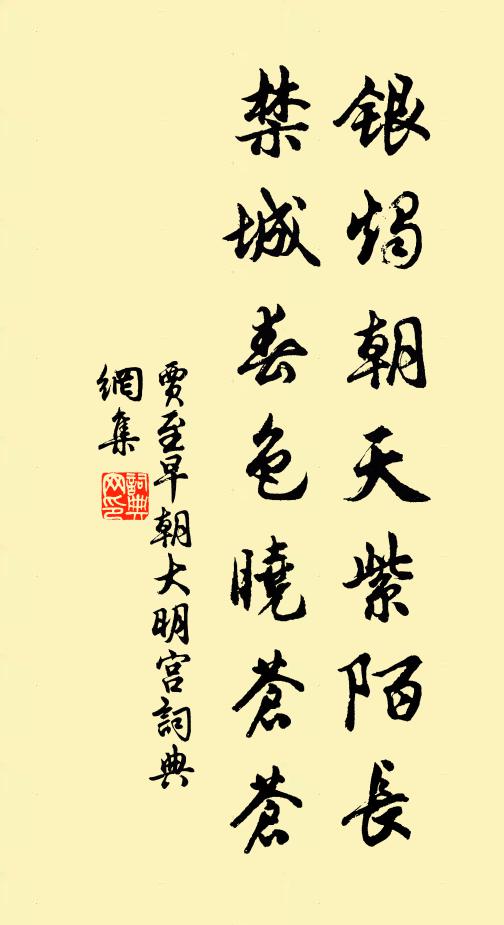 銀燭朝天紫陌長
禁城春色曉蒼蒼
賈至早朝大明宮詞典
網集
詞典
网印